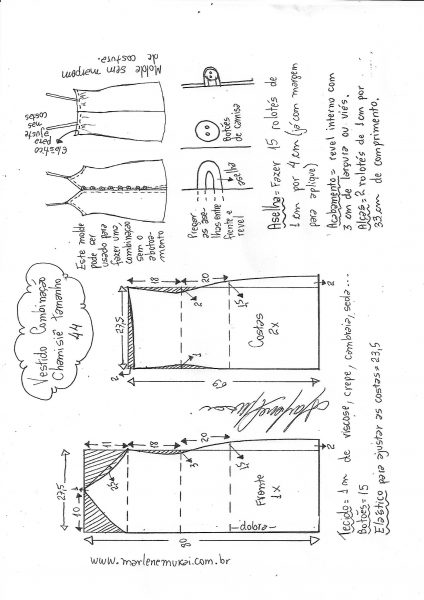 Vestido Combinação
Chamisiê tamanho
44
Este molde
pode ser
usado para
fazer uma
combinação
sem o
abotoa-
mento
Elástico
para
ajuste
nas
costas
Molde sem margem
de costura.
Pregar
as ase-
lhas entre
frente e
revel
aselha
Botões
de camisa
Aselha = Fazer 15 rolotês de
1 cm por 4 cm (já com margem
para aplique)
Acabamento = revel interno com
3 cm de largura ou viés.
Alças = 2 rolotês de 1 cm por
33 cm de comprimento.
27,5
10
11
18
20
2,5
3
1,5
2
Frente
1x
dobra
80
27,5
2
18
20
2
1
1,5
2
Costas
2x
69
www.marlenemukai.com.br
Tecido = 1 m de viscose, crepe, cambraia, seda...
Botões = 15
Elástico para ajustar as costas = 23,5